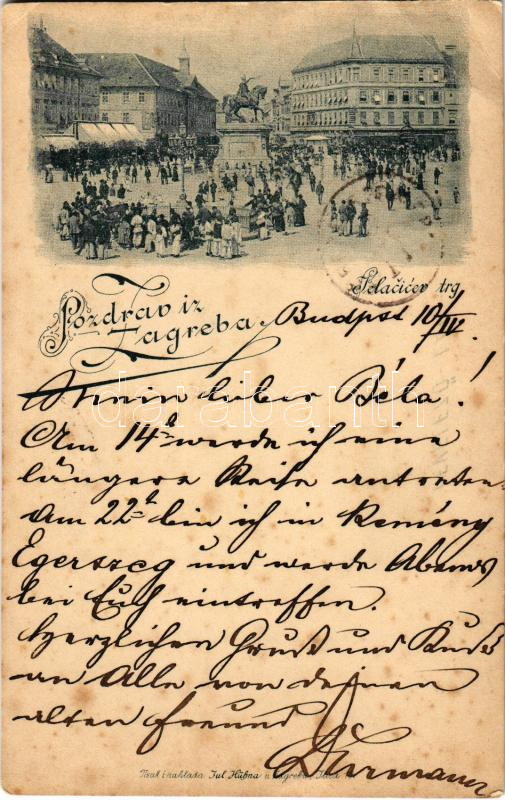 Jelačićev trg
Pozdrav iz
Zagreba.
Budpst 10/IV.
Mein lieber Béla!
Am 14t werde ich eine
längere Reise antreten
Am 22t bin ich in Kemény
Egerszeg und werde Abends
bei Euch eintreffen.
Herzlichen Gruß und Kuß
an Alle von deinem
alten Freund
Tisak i naklada Jul. Hühna u Zagrebu, Ilica
darabanth.com